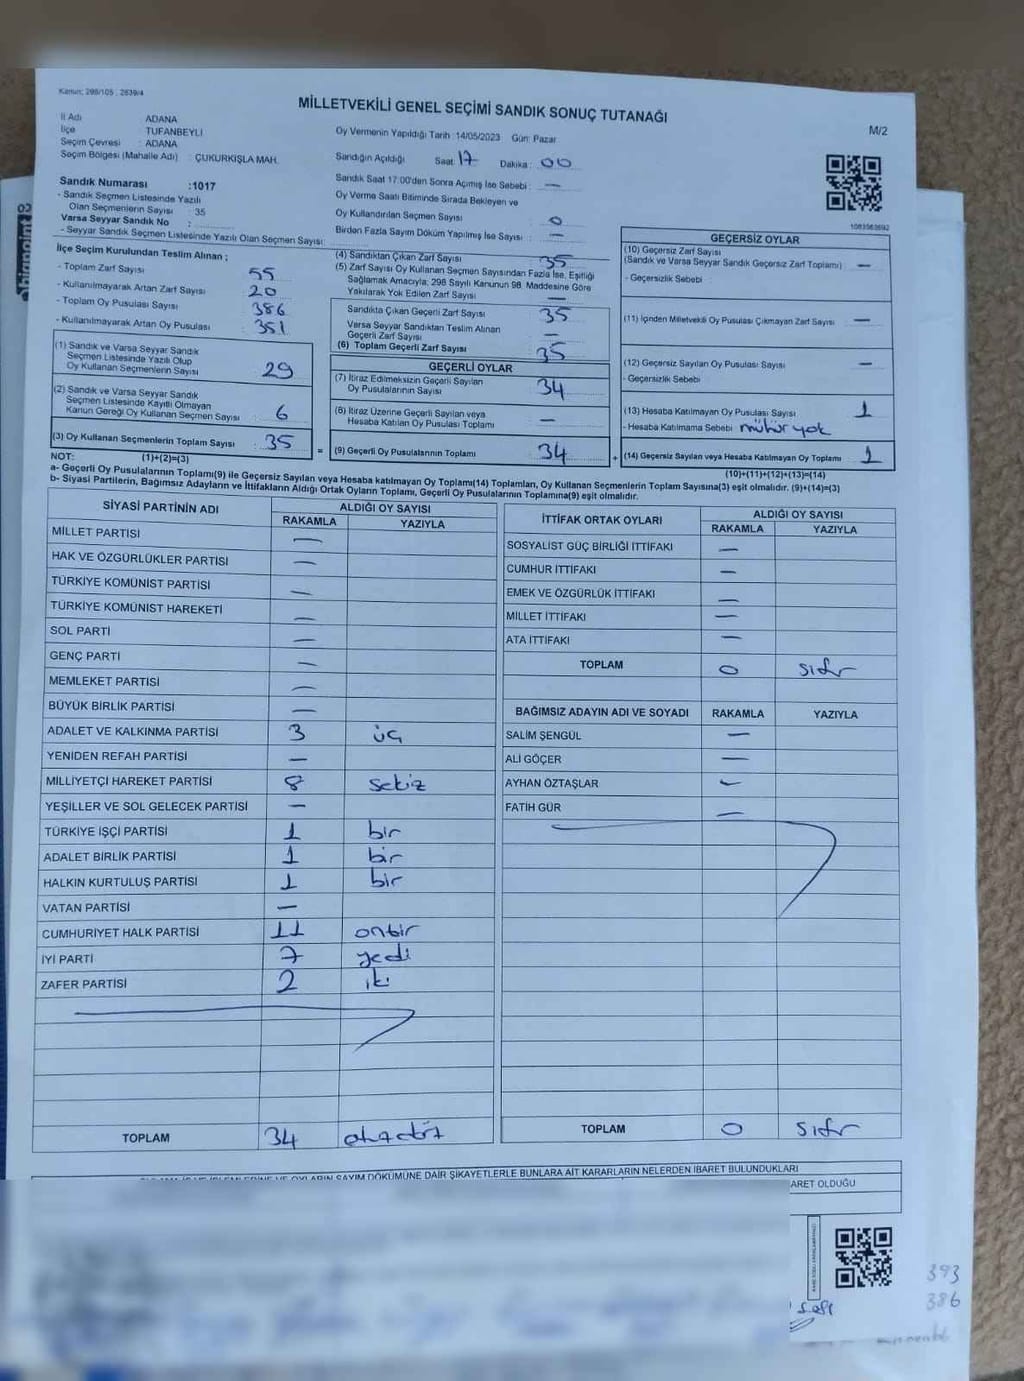 Kanun: 298/105 , 2839/4
MİLLETVEKİLİ GENEL SEÇİMİ SANDIK SONUÇ TUTANAĞI
M/2
İl Adı ADANA
İlçe TUFANBEYLİ
Seçim Çevresi : ADANA
Seçim Bölgesi (Mahalle Adı) : ÇUKURKIŞLA MAH.
Oy Vermenin Yapıldığı Tarih :14/05/2023 Gün: Pazar
Sandığın Açıldığı Saat 17 Dakika : 00
Sandık Saat 17:00'den Sonra Açılmış İse Sebebi : —
Oy Verme Saati Bitiminde Sırada Bekleyen ve
Oy Kullandırılan Seçmen Sayısı 0
Birden Fazla Sayım Döküm Yapılmış İse Sayısı : —
Sandık Numarası :1017
- Sandık Seçmen Listesinde Yazılı
Olan Seçmenlerin Sayısı : 35
Varsa Seyyar Sandık No :
- Seyyar Sandık Seçmen Listesinde Yazılı Olan Seçmen Sayısı:
İlçe Seçim Kurulundan Teslim Alınan ;
- Toplam Zarf Sayısı 55
- Kullanılmayarak Artan Zarf Sayısı 20
- Toplam Oy Pusulası Sayısı 386
- Kullanılmayarak Artan Oy Pusulası 351
(1) Sandık ve Varsa Seyyar Sandık
Seçmen Listesinde Yazılı Olup
Oy Kullanan Seçmenlerin Sayısı 29
(2) Sandık ve Varsa Seyyar Sandık
Seçmen Listesinde Kayıtlı Olmayan
Kanun Gereği Oy Kullanan Seçmen Sayısı 6
(3) Oy Kullanan Seçmenlerin Toplam Sayısı 35
(4) Sandıktan Çıkan Zarf Sayısı 35
(5) Zarf Sayısı Oy Kullanan Seçmen Sayısından Fazla İse, Eşitliği
Sağlamak Amacıyla; 298 Sayılı Kanunun 98. Maddesine Göre
Yakılarak Yok Edilen Zarf Sayısı —
Sandıkta Çıkan Geçerli Zarf Sayısı 35
Varsa Seyyar Sandıktan Teslim Alınan
Geçerli Zarf Sayısı —
(6) Toplam Geçerli Zarf Sayısı 35
GEÇERLİ OYLAR
(7) İtiraz Edilmeksizin Geçerli Sayılan
Oy Pusulalarının Sayısı 34
(8) İtiraz Üzerine Geçerli Sayılan veya
Hesaba Katılan Oy Pusulası Toplamı —
= (9) Geçerli Oy Pusulalarının Toplamı 34
1083583692
GEÇERSİZ OYLAR
(10) Geçersiz Zarf Sayısı
(Sandık ve Varsa Seyyar Sandık Geçersiz Zarf Toplamı) —
- Geçersizlik Sebebi
(11) İçinden Milletvekili Oy Pusulası Çıkmayan Zarf Sayısı —
(12) Geçersiz Sayılan Oy Pusulası Sayısı —
- Geçersizlik Sebebi
(13) Hesaba Katılmayan Oy Pusulası Sayısı 1
- Hesaba Katılmama Sebebi mühür yok
+ (14) Geçersiz Sayılan veya Hesaba Katılmayan Oy Toplamı 1
NOT: (1)+(2)=(3)
(10)+(11)+(12)+(13)=(14)
a- Geçerli Oy Pusulalarının Toplamı(9) ile Geçersiz Sayılan veya Hesaba katılmayan Oy Toplamı(14) Toplamları, Oy Kullanan Seçmenlerin Toplam Sayısına(3) eşit olmalıdır. (9)+(14)=(3)
b- Siyasi Partilerin, Bağımsız Adayların ve İttifakların Aldığı Ortak Oyların Toplamı, Geçerli Oy Pusulalarının Toplamına(9) eşit olmalıdır.
SİYASİ PARTİNİN ADI ALDIĞI OY SAYISI
RAKAMLA YAZIYLA
MİLLET PARTİSİ —
HAK VE ÖZGÜRLÜKLER PARTİSİ —
TÜRKİYE KOMÜNİST PARTİSİ —
TÜRKİYE KOMÜNİST HAREKETİ —
SOL PARTİ —
GENÇ PARTİ —
MEMLEKET PARTİSİ —
BÜYÜK BİRLİK PARTİSİ —
ADALET VE KALKINMA PARTİSİ 3 üç
YENİDEN REFAH PARTİSİ —
MİLLİYETÇİ HAREKET PARTİSİ 8 sekiz
YEŞİLLER VE SOL GELECEK PARTİSİ —
TÜRKİYE İŞÇİ PARTİSİ 1 bir
ADALET BİRLİK PARTİSİ 1 bir
HALKIN KURTULUŞ PARTİSİ 1 bir
VATAN PARTİSİ —
CUMHURİYET HALK PARTİSİ 11 onbir
İYİ PARTİ 7 yedi
ZAFER PARTİSİ 2 iki
TOPLAM 34 otuzdört
İTTİFAK ORTAK OYLARI ALDIĞI OY SAYISI
RAKAMLA YAZIYLA
SOSYALİST GÜÇ BİRLİĞİ İTTİFAKI —
CUMHUR İTTİFAKI —
EMEK VE ÖZGÜRLÜK İTTİFAKI —
MİLLET İTTİFAKI —
ATA İTTİFAKI —
TOPLAM 0 sıfır
BAĞIMSIZ ADAYIN ADI VE SOYADI RAKAMLA YAZIYLA
SALİM ŞENGÜL —
ALİ GÖÇER —
AYHAN ÖZTAŞLAR —
FATİH GÜR —
TOPLAM 0 sıfır
OYLARIN SAYIM DÖKÜMÜNE DAİR ŞİKAYETLERLE BUNLARA AİT KARARLARIN NELERDEN İBARET BULUNDUKLARI
ARET OLDUĞU
393
386